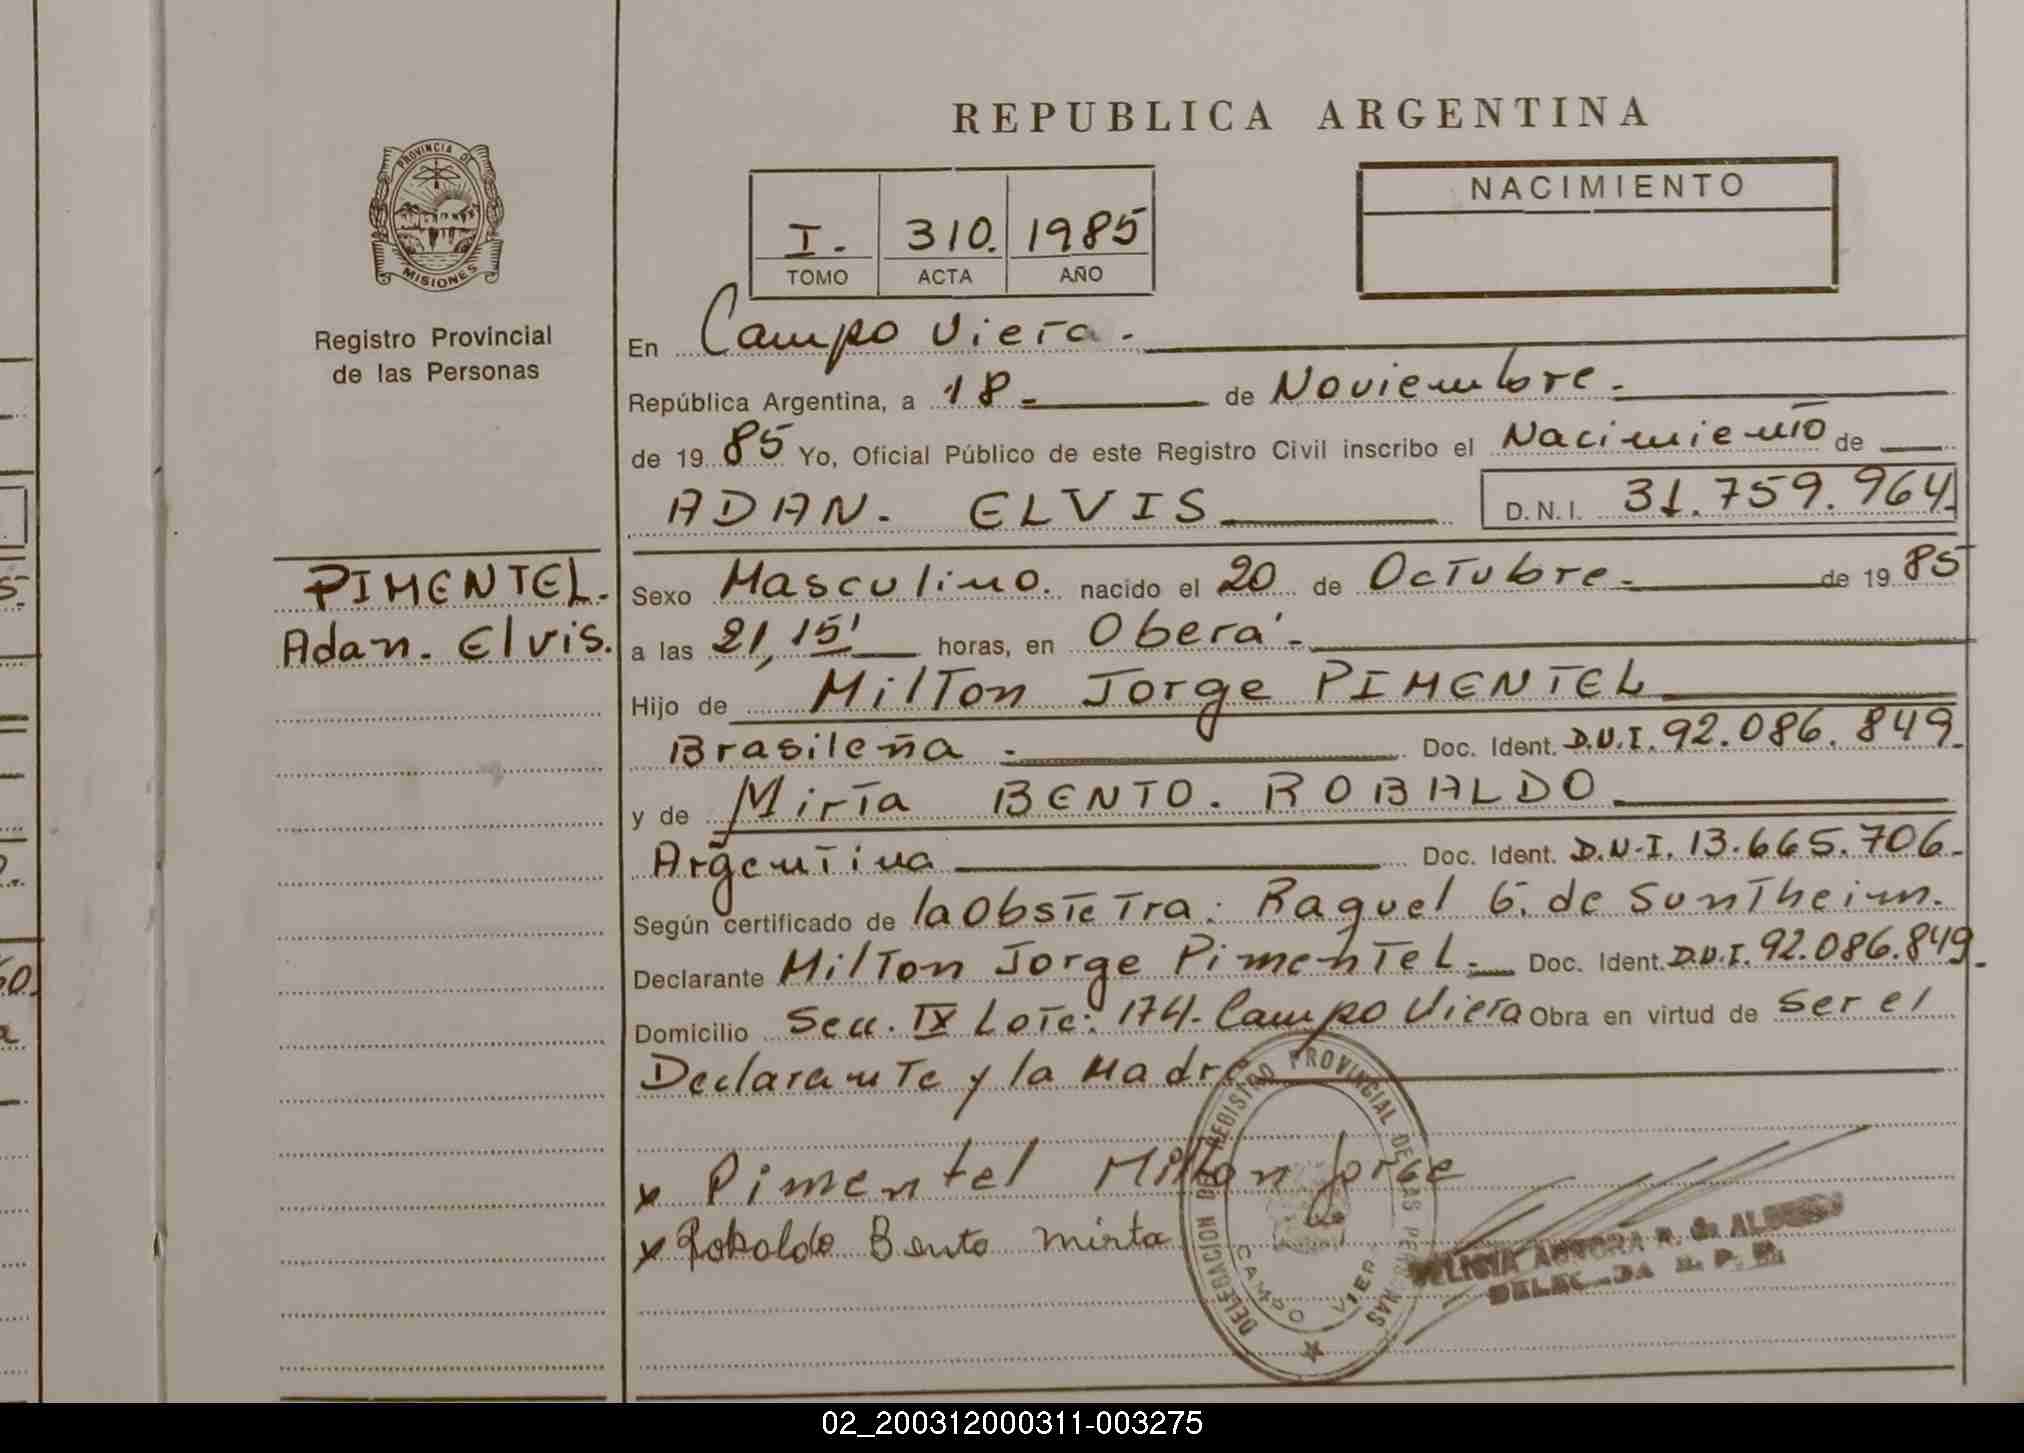 PROVINCIA DE
MISIONES
Registro Provincial
de las Personas
PIMENTEL.
Adan. Elvis.
REPUBLICA ARGENTINA
I. 310. 1985
TOMO ACTA AÑO
NACIMIENTO
En Campo Viera.
República Argentina, a 18 de Noviembre.
de 1985 Yo, Oficial Público de este Registro Civil inscribo el Nacimiento de
ADAN. ELVIS D.N.I. 31.759.964
Sexo Masculino. nacido el 20 de Octubre. de 1985
a las 21,15' horas, en Oberá.
Hijo de Milton Jorge PIMENTEL
Brasileña. Doc. Ident. D.N.I. 92.086.849.
y de Mirta BENTO. ROBALDO
Argentina Doc. Ident. D.N.I. 13.665.706.
Según certificado de la Obstetra: Raquel G. de Suntheim.
Declarante Milton Jorge Pimentel. Doc. Ident. D.N.I. 92.086.849.
Domicilio Secc. IX Lote: 174. Campo Viera Obra en virtud de ser el
Declarante y la Madre
x Pimentel Milton Jorge
x Robaldo Bento mirta
DELEGACION DEL REGISTRO PROVINCIAL DE LAS PERSONAS
CAMPO VIERA
DELICIA AURORA R. de
DELEGADA R. P. P.
02_200312000311-003275